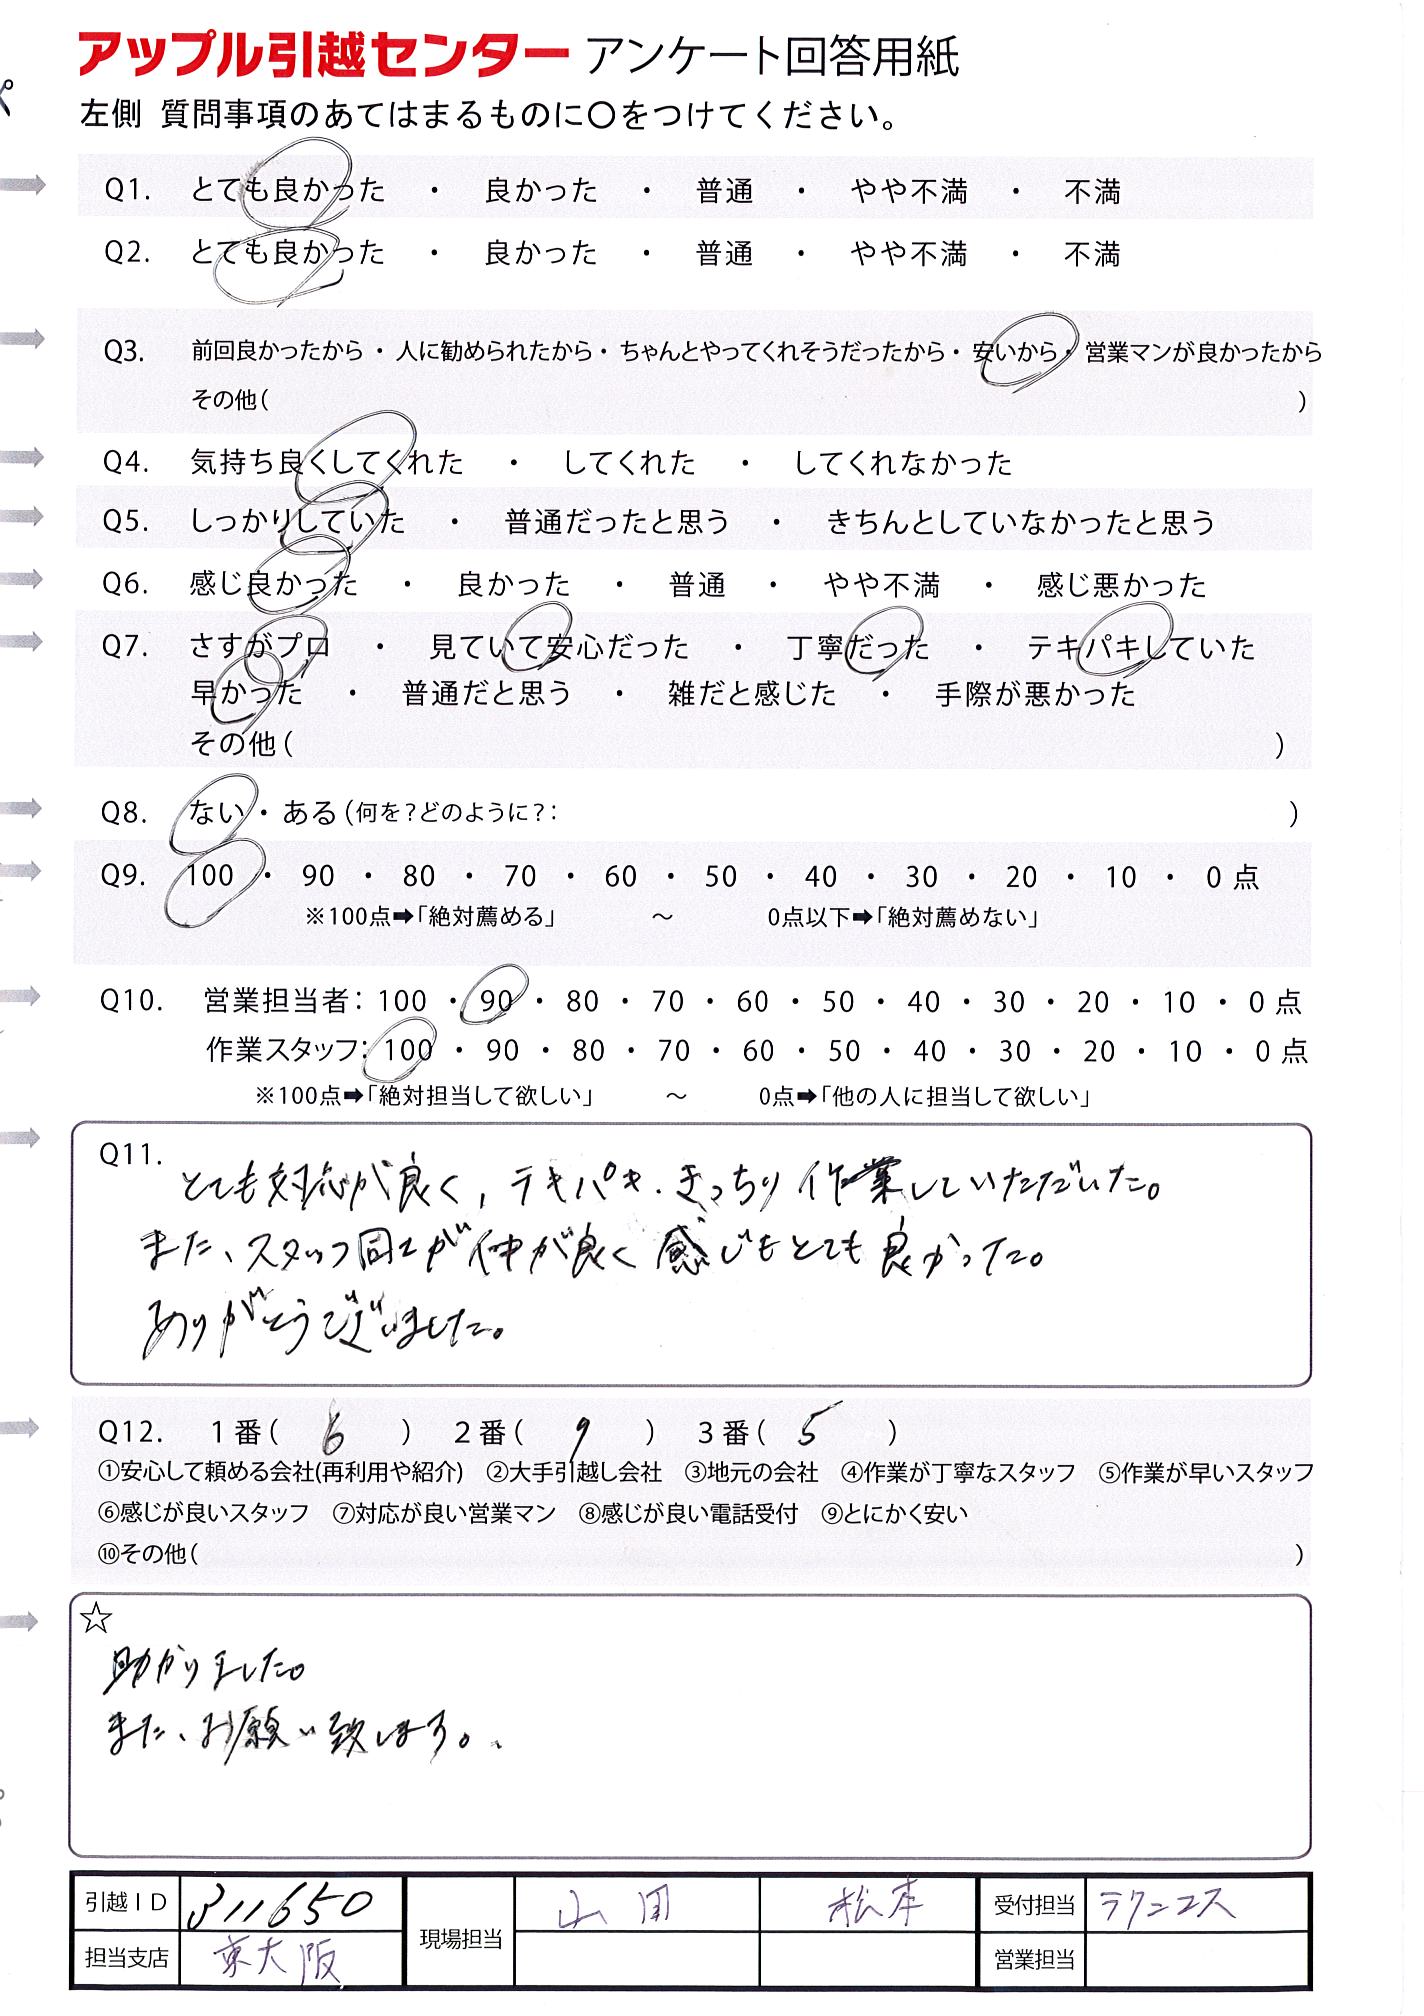 アップル引越センター アンケート回答用紙
左側 質問事項のあてはまるものに〇をつけてください。
Q1. とても良かった ・ 良かった ・ 普通 ・ やや不満 ・ 不満
Q2. とても良かった ・ 良かった ・ 普通 ・ やや不満 ・ 不満
Q3. 前回良かったから・人に勧められたから・ちゃんとやってくれそうだったから・安いから・営業マンが良かったから
その他( )
Q4. 気持ち良くしてくれた ・ してくれた ・ してくれなかった
Q5. しっかりしていた ・ 普通だったと思う ・ きちんとしていなかったと思う
Q6. 感じ良かった ・ 良かった ・ 普通 ・ やや不満 ・ 感じ悪かった
Q7. さすがプロ ・ 見ていて安心だった ・ 丁寧だった ・ テキパキしていた
早かった ・ 普通だと思う ・ 雑だと感じた ・ 手際が悪かった
その他( )
Q8. ない・ある(何を?どのように?: )
Q9. 100 ・ 90 ・ 80 ・ 70 ・ 60 ・ 50 ・ 40 ・ 30 ・ 20 ・ 10 ・ 0点
※100点➡「絶対薦める」 ～ 0点以下➡「絶対薦めない」
Q10. 営業担当者: 100 ・ 90 ・ 80 ・ 70 ・ 60 ・ 50 ・ 40 ・ 30 ・ 20 ・ 10 ・ 0点
作業スタッフ: 100 ・ 90 ・ 80 ・ 70 ・ 60 ・ 50 ・ 40 ・ 30 ・ 20 ・ 10 ・ 0点
※100点➡「絶対担当して欲しい」 ～ 0点➡「他の人に担当して欲しい」
Q11.
とても対応が良く、テキパキ、きっちり作業していただいた。
また、スタッフ同士が仲が良く感じもとても良かった。
ありがとうございました。
Q12. 1番( 6 ) 2番( 9 ) 3番( 5 )
①安心して頼める会社(再利用や紹介) ②大手引越し会社 ③地元の会社 ④作業が丁寧なスタッフ ⑤作業が早いスタッフ
⑥感じが良いスタッフ ⑦対応が良い営業マン ⑧感じが良い電話受付 ⑨とにかく安い
⑩その他( )
☆
助かりました。
また、お願い致します。
引越ID 311650 現場担当 山田 松本 受付担当 ラクンコス
担当支店 東大阪 営業担当